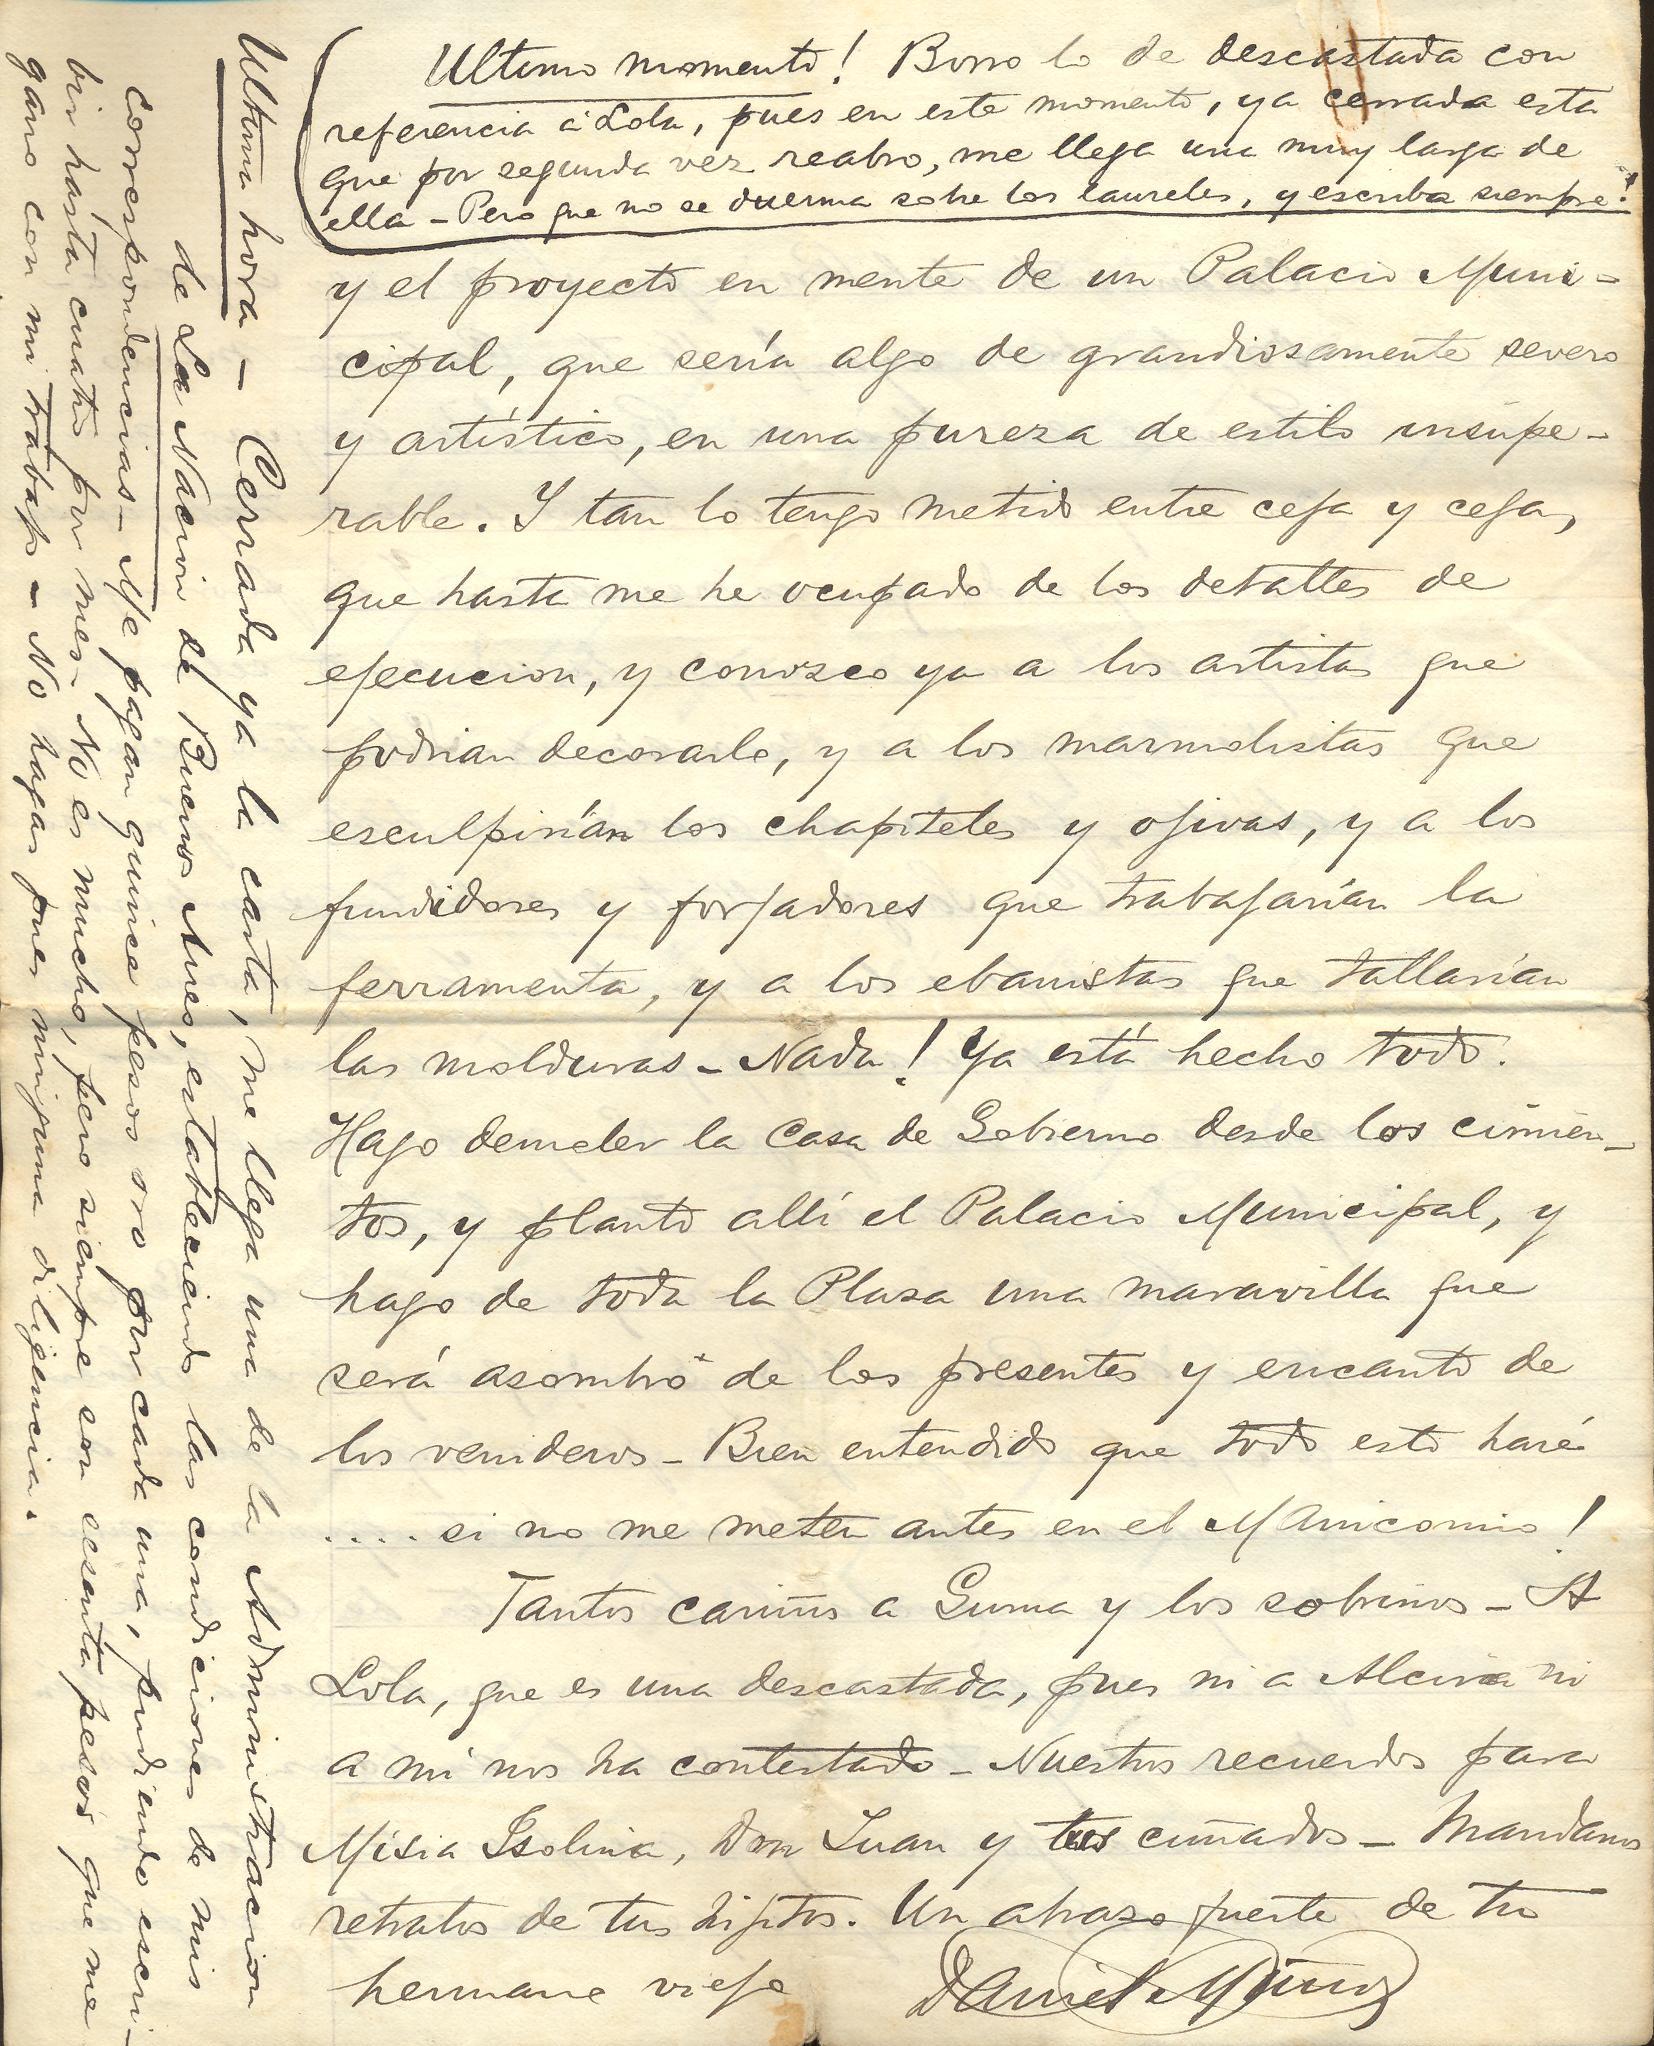 Ultimo momento! Borro lo de descastada con
referencia á Lola, pues en este momento, ya cerrada esta
que por segunda vez reabro, me llega una muy larga de
ella - Pero que no se duerma sobre los laureles, y escriba siempre!
y el proyecto en mente de un Palacio Muni-
cipal, que sería algo de grandiosamente severo
y artístico, en una pureza de estilo insupe-
rable. Y tan lo tengo metido entre ceja y ceja,
que hasta me he ocupado de los detalles de
ejecucion, y conozco ya a los artistas que
podrian decorarlo, y a los marmolistas que
esculpirían los chapiteles y ojivas, y a los
fundidores y forjadores que trabajarían la
ferramenta, y a los ebanistas que tallarían
las molduras - Nada! Ya está hecho todo.
Hago demoler la Casa de Gobierno desde los cimien-
tos, y planto allí el Palacio Municipal, y
hago de toda la Plaza una maravilla que
será asombro de los presentes y encanto de
los venideros - Bien entendido que todo esto haré
.... si no me meten antes en el Manicomio!
Tantos cariños a Guma y los sobrinos - A
Lola, que es una descastada, pues ni a Alcira ni
a mí nos ha contestado - Nuestros recuerdos para
Misia Isolina, Don Juan y tus cuñados - Mandanos
retratos de tus hijitos. Un abrazo fuerte de tu
hermano viejo
Daniel Muñoz
Ultima hora - Cerrada ya la carta, me llega una de la Administracion
de La Nacion de Buenos Aires, estableciendo las condiciones de mis
correspondencias - Me pagan quince pesos oro por cada una, pudiendo escri-
bir hasta cuatro por mes. No es mucho, pero siempre son sesenta pesos que me
gano con mi trabajo - No hagas pues ninguna diligencia.